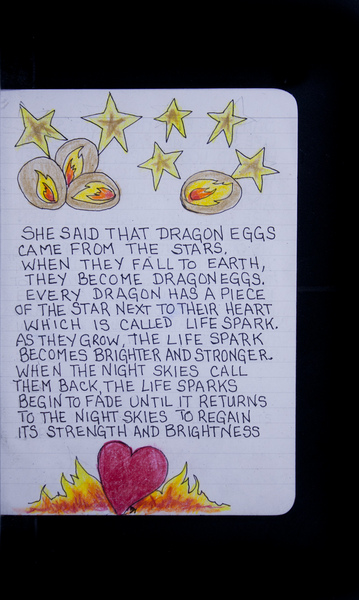 SHE SAID THAT DRAGON EGGS
CAME FROM THE STARS.
WHEN THEY FALL TO EARTH,
THEY BECOME DRAGON EGGS.
EVERY DRAGON HAS A PIECE
OF THE STAR NEXT TO THEIR HEART
WHICH IS CALLED LIFE SPARK.
AS THEY GROW, THE LIFE SPARK
BECOMES BRIGHTER AND STRONGER.
WHEN THE NIGHT SKIES CALL
THEM BACK, THE LIFE SPARKS
BEGIN TO FADE UNTIL IT RETURNS
TO THE NIGHT SKIES TO REGAIN
ITS STRENGTH AND BRIGHTNESS